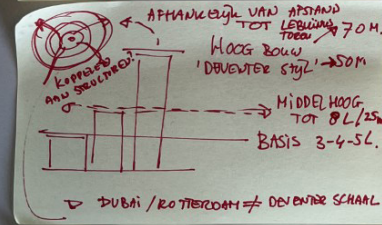 AFHANKELIJK VAN AFSTAND
TOT LEBUINUS
TOREN 70 M.
HOOG BOUW
'DEVENTER STIJL' → 50M
KOPPELEN
AAN STRUCTUREN?
MIDDELHOOG
TOT 8L/25M
BASIS 3-4-5L.
▷ DUBAI / ROTTERDAM ≠ DEVENTER SCHAAL